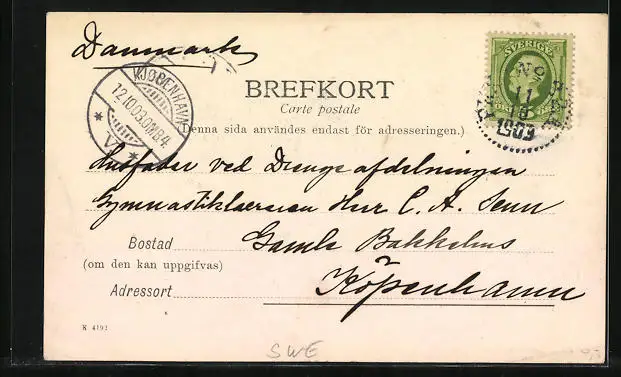 Danmark
SVERIGE
KJØBENHAVN
12.10.03.
V.
11
10
1903
BREFKORT
Carte postale
(Denna sida användes endast för adresseringen.)
Husfader ved Drengeafdelningen
Gymnastiklæreren Herr C. A. Senn
Bostad Gamle Bakkehus
(om den kan uppgifvas)
Adressort Köpenhamn
K 4192
SWE